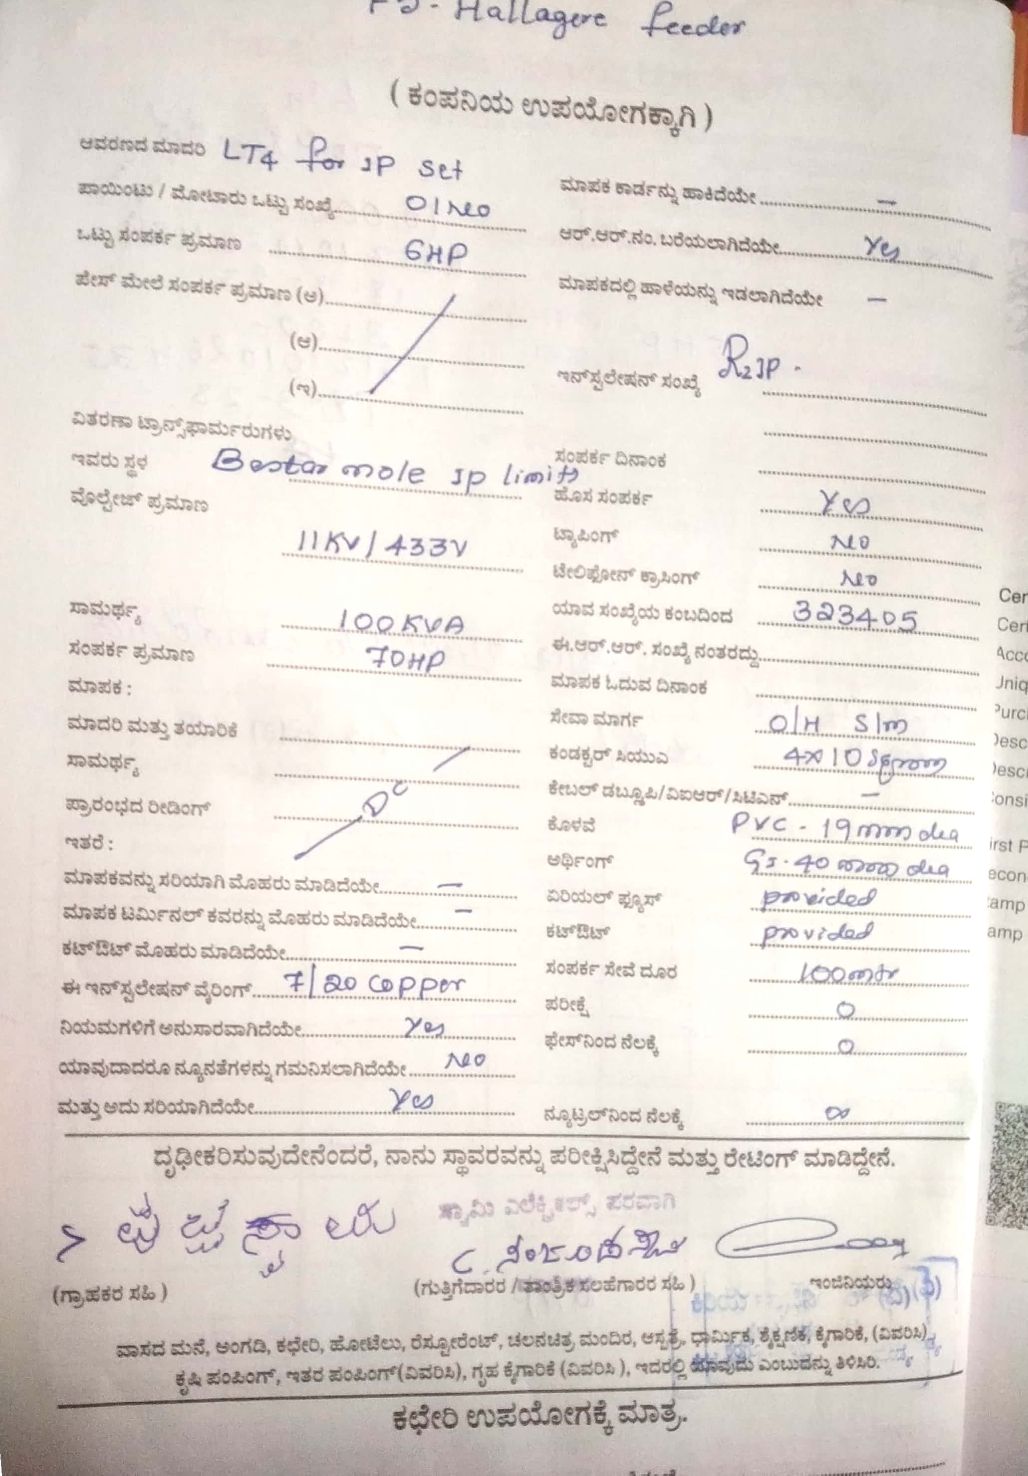 F5 - Hallagere feeder
( ಕಂಪನಿಯ ಉಪಯೋಗಕ್ಕಾಗಿ )
ಆವರಣದ ಮಾದರಿ LT4 for IP Set
ಪಾಯಿಂಟು / ಮೋಟಾರು ಒಟ್ಟು ಸಂಖ್ಯೆ 01 No
ಒಟ್ಟು ಸಂಪರ್ಕ ಪ್ರಮಾಣ 6HP
ಪೇಸ್ ಮೇಲೆ ಸಂಪರ್ಕ ಪ್ರಮಾಣ (ಅ)
(ಆ)
(ಇ)
ವಿತರಣಾ ಟ್ರಾನ್ಸ್‌ಫಾರ್ಮರುಗಳು
ಇವರು ಸ್ಥಳ IP limits
ವೊಲ್ಟೇಜ್ ಪ್ರಮಾಣ
11KV / 433V
ಸಾಮರ್ಥ್ಯ 100KVA
ಸಂಪರ್ಕ ಪ್ರಮಾಣ 70HP
ಮಾಪಕ :
ಮಾದರಿ ಮತ್ತು ತಯಾರಿಕೆ
ಸಾಮರ್ಥ್ಯ
ಪ್ರಾರಂಭದ ರೀಡಿಂಗ್ DC
ಇತರೆ :
ಮಾಪಕವನ್ನು ಸರಿಯಾಗಿ ಮೊಹರು ಮಾಡಿದೆಯೇ —
ಮಾಪಕ ಟರ್ಮಿನಲ್ ಕವರನ್ನು ಮೊಹರು ಮಾಡಿದೆಯೇ —
ಕಟ್‌ಔಟ್ ಮೊಹರು ಮಾಡಿದೆಯೇ —
ಈ ಇನ್‌ಸ್ಟಲೇಷನ್ ವೈರಿಂಗ್ 7/20 Copper
ನಿಯಮಗಳಿಗೆ ಅನುಸಾರವಾಗಿದೆಯೇ Yes
ಯಾವುದಾದರೂ ನ್ಯೂನತೆಗಳನ್ನು ಗಮನಿಸಲಾಗಿದೆಯೇ No
ಮತ್ತು ಅದು ಸರಿಯಾಗಿದೆಯೇ Yes
ಮಾಪಕ ಕಾರ್ಡನ್ನು ಹಾಕಿದೆಯೇ —
ಆರ್.ಆರ್.ನಂ. ಬರೆಯಲಾಗಿದೆಯೇ Yes
ಮಾಪಕದಲ್ಲಿ ಹಾಳೆಯನ್ನು ಇಡಲಾಗಿದೆಯೇ —
ಇನ್‌ಸ್ಟಲೇಷನ್ ಸಂಖ್ಯೆ
ಸಂಪರ್ಕ ದಿನಾಂಕ
ಹೊಸ ಸಂಪರ್ಕ Yes
ಟ್ಯಾಪಿಂಗ್ No
ಟೇಲಿಫೋನ್ ಕ್ರಾಸಿಂಗ್ No
ಯಾವ ಸಂಖ್ಯೆಯ ಕಂಬದಿಂದ 323405
ಈ.ಆರ್.ಆರ್. ಸಂಖ್ಯೆ ನಂತರದ್ದು
ಮಾಪಕ ಓದುವ ದಿನಾಂಕ
ಸೇವಾ ಮಾರ್ಗ O/H S/m
ಕಂಡಕ್ಟರ್ ಸಿಯುಎ 4x10 Sqmm
ಕೇಬಲ್ ಡಬ್ಲ್ಯೂಪಿ/ವಿಐಆರ್/ಸಿಟಿಎಸ್ —
ಕೊಳವೆ PVC - 19mm dia
ಅರ್ಥಿಂಗ್ GI. 40 mm dia
ಏರಿಯಲ್ ಫ್ಯೂಸ್ provided
ಕಟ್‌ಔಟ್ provided
ಸಂಪರ್ಕ ಸೇವೆ ದೂರ 100mtr
ಪರೀಕ್ಷೆ 0
ಫೇಸ್‌ನಿಂದ ನೆಲಕ್ಕೆ 0
ನ್ಯೂಟ್ರಲ್‌ನಿಂದ ನೆಲಕ್ಕೆ ∞
ದೃಢೀಕರಿಸುವುದೇನೆಂದರೆ, ನಾನು ಸ್ಥಾವರವನ್ನು ಪರೀಕ್ಷಿಸಿದ್ದೇನೆ ಮತ್ತು ರೇಟಿಂಗ್ ಮಾಡಿದ್ದೇನೆ.
ಸ್ವಾಮಿ ಎಲೆಕ್ಟ್ರಿಕಲ್ಸ್ ಪರವಾಗಿ
(ಗ್ರಾಹಕರ ಸಹಿ ) (ಗುತ್ತಿಗೆದಾರರ / ತಾಂತ್ರಿಕ ಸಲಹೆಗಾರರ ಸಹಿ ) ಇಂಜಿನಿಯರು
ವಾಸದ ಮನೆ, ಅಂಗಡಿ, ಕಛೇರಿ, ಹೋಟೆಲು, ರೆಸ್ಟೋರೆಂಟ್, ಚಲನಚಿತ್ರ ಮಂದಿರ, ಆಸ್ಪತ್ರೆ, ಧಾರ್ಮಿಕ, ಶೈಕ್ಷಣಿಕ, ಕೈಗಾರಿಕೆ, (ವಿವರಿಸಿ)
ಕೃಷಿ ಪಂಪಿಂಗ್, ಇತರ ಪಂಪಿಂಗ್(ವಿವರಿಸಿ), ಗೃಹ ಕೈಗಾರಿಕೆ (ವಿವರಿಸಿ ), ಇದರಲ್ಲಿ ಯಾವುದು ಎಂಬುದನ್ನು ತಿಳಿಸಿರಿ.
ಕಛೇರಿ ಉಪಯೋಗಕ್ಕೆ ಮಾತ್ರ.